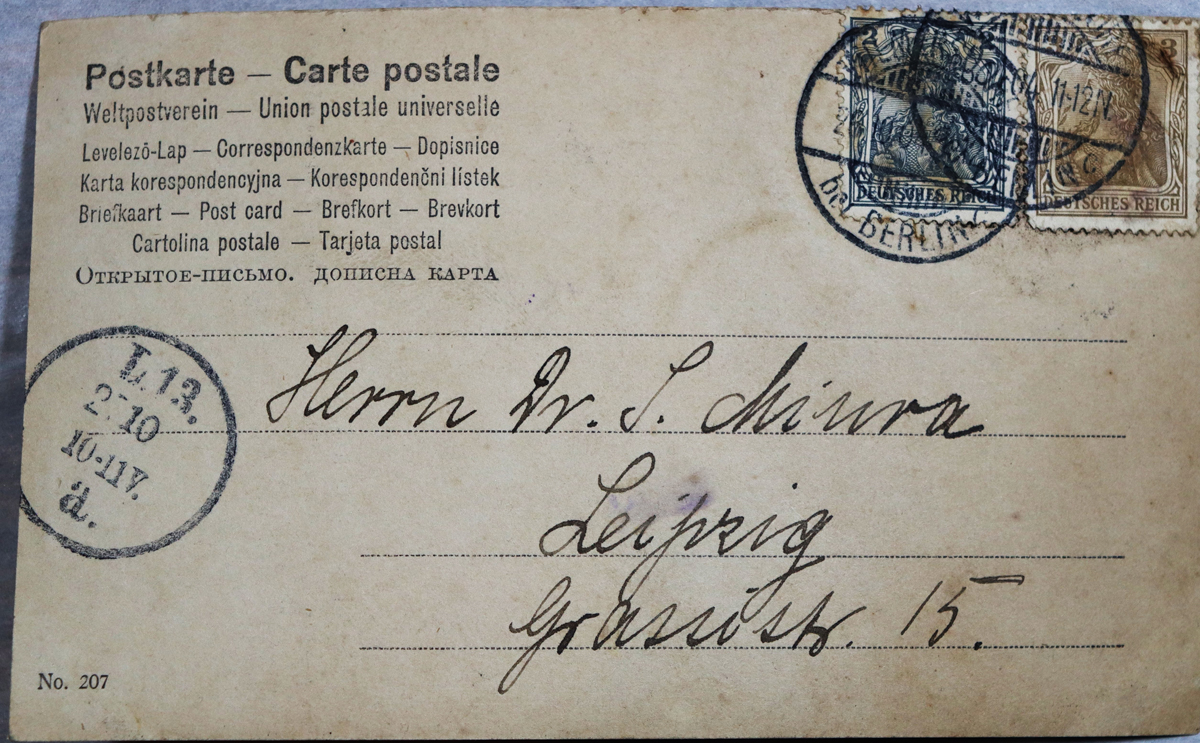 Postkarte — Carte postale
Weltpostverein — Union postale universelle
Levelező-Lap — Correspondenzkarte — Dopisnice
Karta korespondencyjna — Korespondenčni lístek
Briefkaart — Post card — Brefkort — Brevkort
Cartolina postale — Tarjeta postal
Открытое-письмо. дописна карта
2
3
11-12N.
DEUTSCHES REICH
DEUTSCHES REICH
BERLIN
L. 13.
10
10-11V.
a.
Herrn Dr. S. Miura
Leipzig
Grassistr. 15.
No. 207